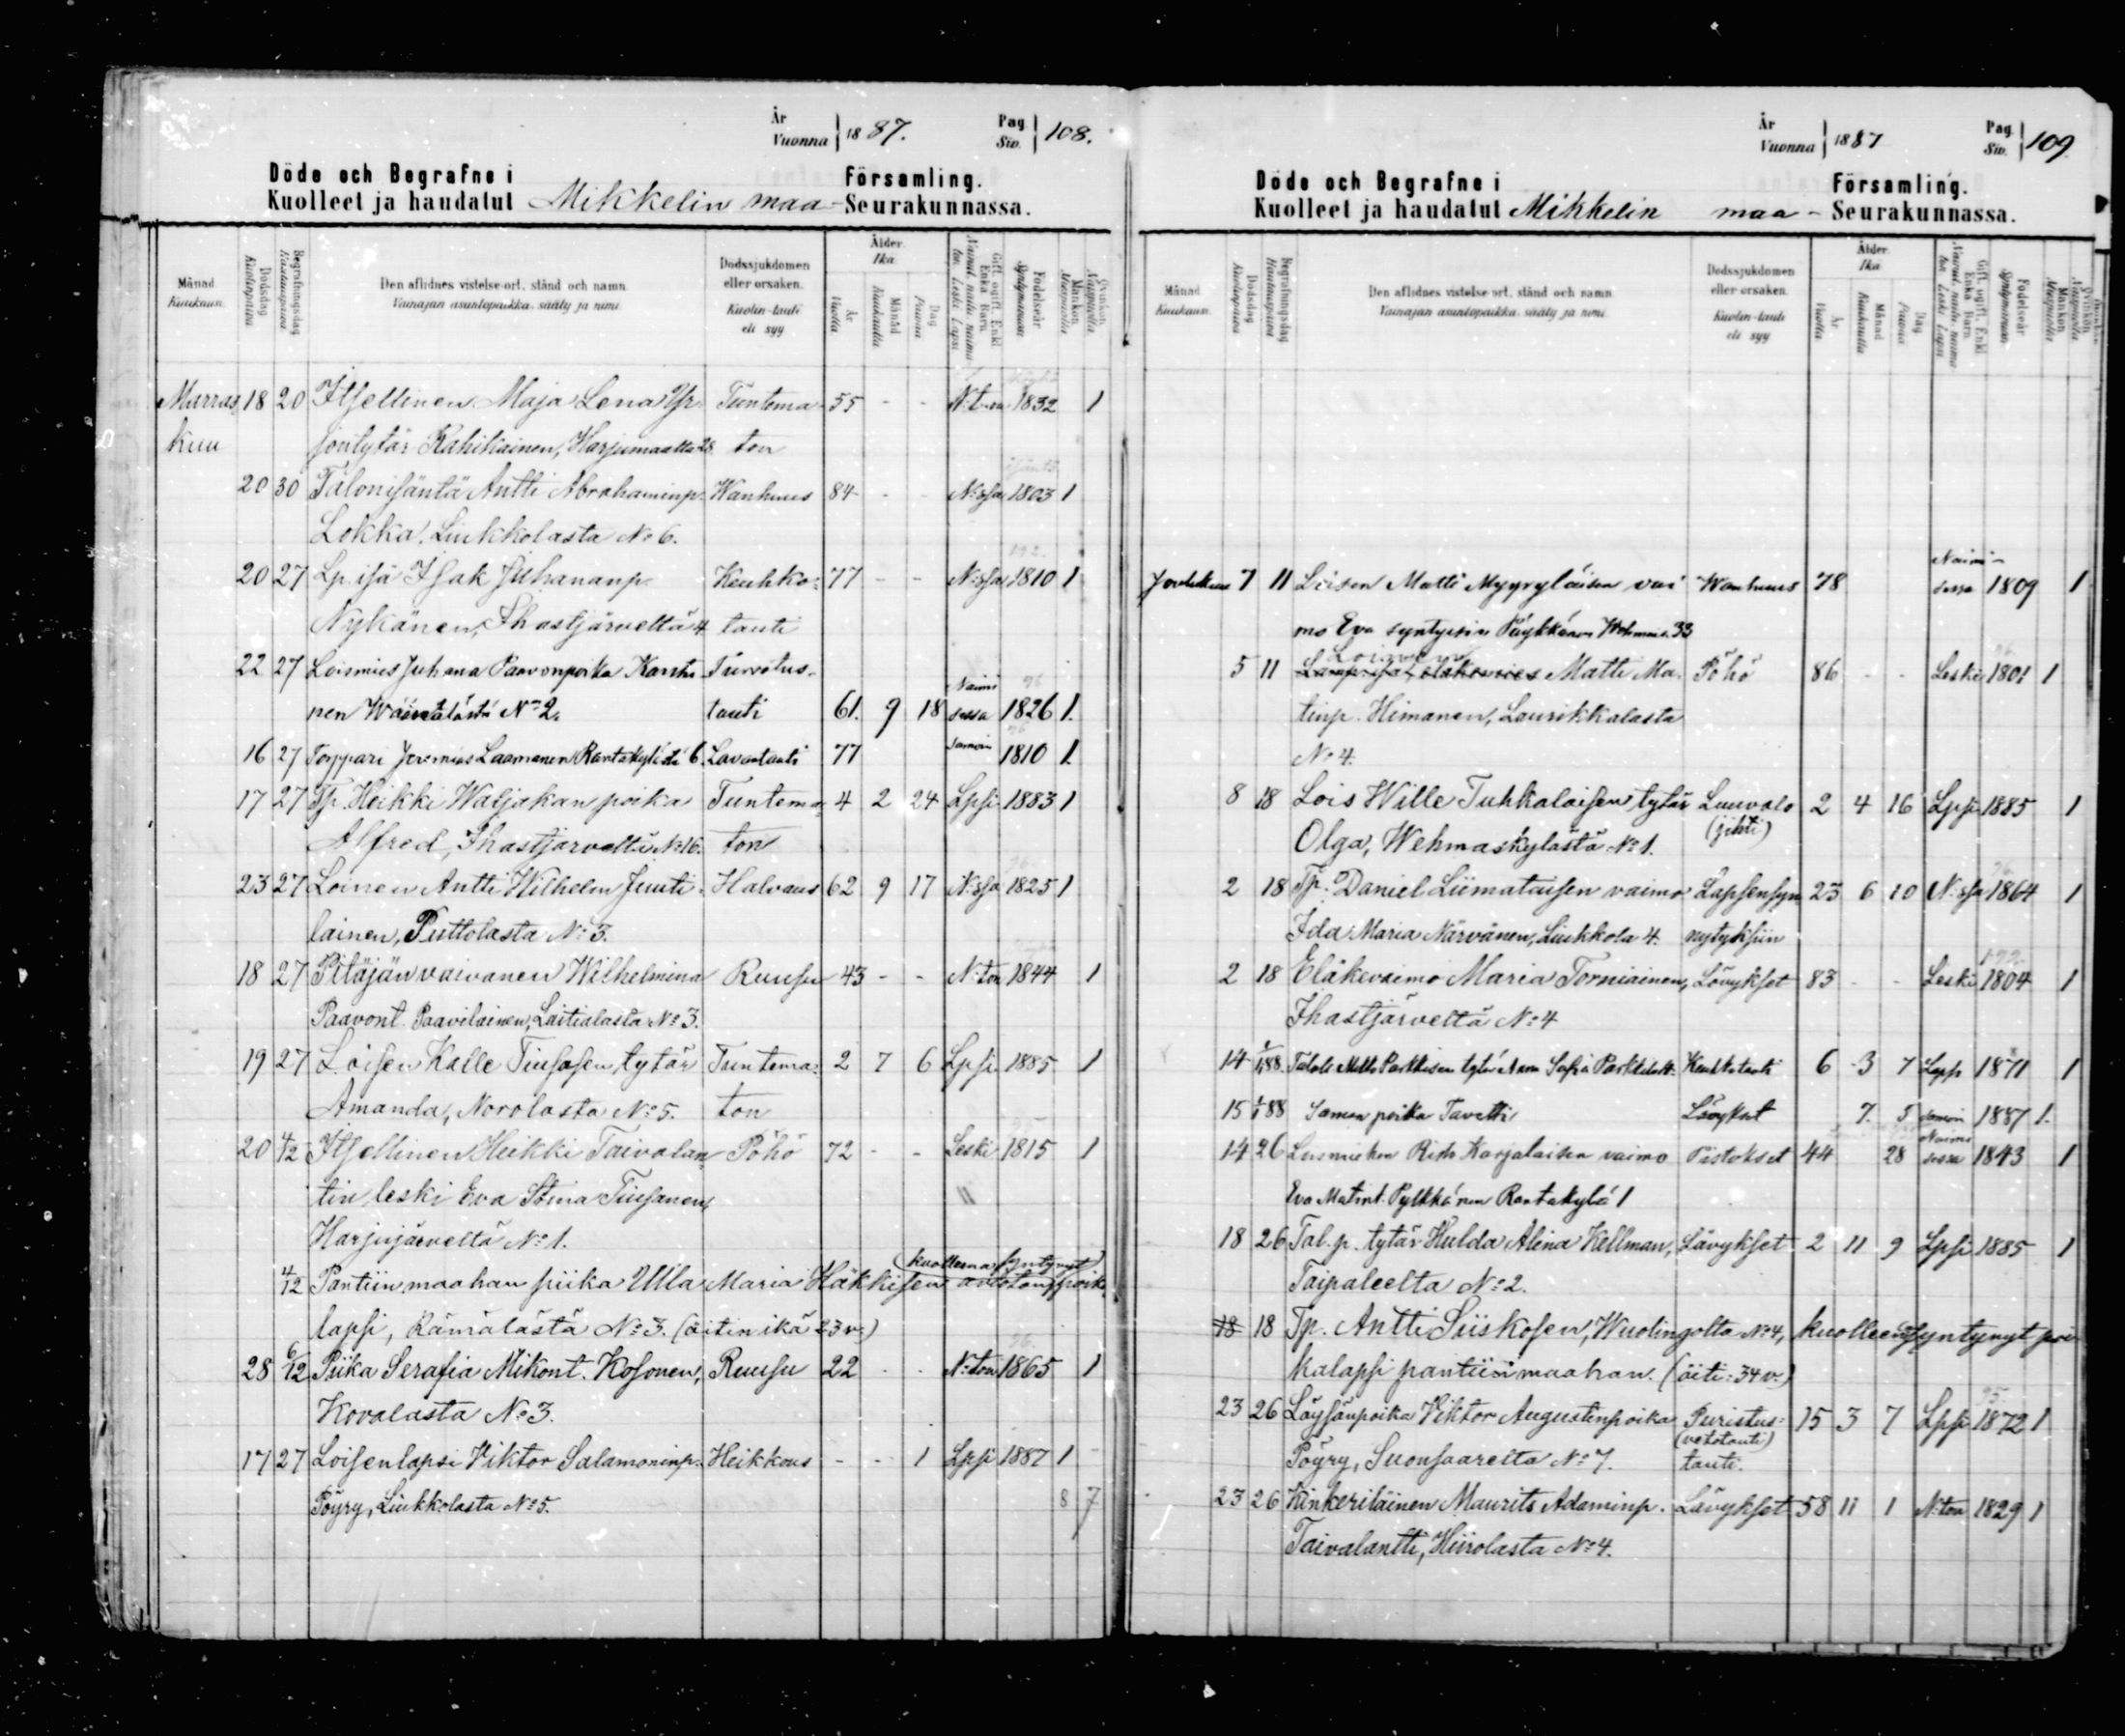 År
Vuonna 1887. Pag. Siv. 108.
Döde och Begrafne i Församling.
Kuolleet ja haudatut Mikkelin maa- Seurakunnassa.
Månad Kuukausi
Dödsdag Kuolinpäivä
Begrafningsdag Hautauspäivä
Den aflidnes vistelse-ort, stånd och namn.
Vainajan asuntopaikka, sääty ja nimi.
Dödssjukdomen eller orsaken.
Kuolin-tauti eli syy
Ålder. Ikä.
År Vuotta
Månad Kuukautta
Dag Päivää
Födelseår Syntymävuosi
Mankön Miespuolia
Marras 18 20 Itsellinen Maja Lena Yr Tuntema 55 - - N:ton 1832 1
kuu jöntytär Rahikainen, Harjumaalta 28 ton
20 30 Talonisäntä Antti Abrahaminp. Wanhuus 84 - - N:ssa 1803 1
Lokka, Liukkolasta No 6.
20 27 Lp. isä Isak Juhananp. Keuhko- 77 - - N:ssa 1810 1
Nykänen, Ihastjärveltä 4 tauti
22 27 Loismies Juhana Paavonpoika Karsti- Turvotus-
nen Wäänälästä No 2. tauti 61. 9 18 Naimi sessa 1826 1.
16 27 Torppari Jeremias Laamanen Rantakylästä 6. Lavantauti 77 samoin 1810 1.
17 27 Tp. Heikki Warjakan poika Tuntema 4 2 24 Lpsi 1883 1
Alfred, Ihastjärveltä No 16. ton
23 27 Loinen Antti Wilhelm Juuti- Halvaus 62 9 17 N:ssa 1825 1
lainen, Puttolasta No 3.
18 27 Pitäjänvaivanen Wilhelmina Ruusu 43 - - N:ton 1844 1
Paavont. Paavilainen, Laitialasta No 3.
19 27 Loisen Kalle Tiusasen tytär Tuntema- 2 7 6 Lpsi 1885 1
Amanda, Norolasta No 5. ton
20 4/12 Itsellinen Heikki Taivalan- Pöhö 72 - - Leski 1815 1
tin leski Eva Stina Tiusanen,
Harjujärveltä No 1.
kuolleena syntynyt
4/12 Pantiin maahan piika Ulla Maria Häkkisen aviotonpoika
lapsi, Rämälästä No 3. (äitin ikä 23 v.)
28 6/12 Piika Serafia Mikont. Kosonen, Ruusu 22 - - N:ton 1865 1
Kovalasta No 3.
17 27 Loisenlapsi Viktor Salamoninp. Heikkous - - 1 Lpsi 1887 1
Pöyry, Liukkolasta No 5. 8 7
År
Vuonna 1887 Pag. Siv. 109.
Döde och Begrafne i Församling.
Kuolleet ja haudatut Mikkelin maa- Seurakunnassa.
Månad Kuukausi
Dödsdag Kuolinpäivä
Begrafningsdag Hautauspäivä
Den aflidnes vistelse-ort, stånd och namn.
Vainajan asuntopaikka, sääty ja nimi.
Dödssjukdomen eller orsaken.
Kuolin-tauti eli syy
Ålder. Ikä.
År Vuotta
Månad Kuukautta
Dag Päivää
Födelseår Syntymävuosi
Mankön Miespuolia
Joulukuu 7 11 Loisen Matti Myyryläisen vai Wanhuus 78 Naimi- sessa 1809 1
mo Eva syntyisin Pöykkönen Wehmais. 33
Loinen
5 11 Matti Ma- Pöhö 86 - - Leski 1801 1
tinp. Himanen, Laurikkalasta
No 4.
8 18 Lois Wille Tuhkalaisen tytär Luuvalo 2 4 16 Lpsi 1885 1
Olga, Wehmaskylästä No 1. (jihti)
2 18 Tp. Daniel Liimataisen vaimo Lapsensyn 23 6 10 N:ssa 1864 1
Ida Maria Närvänen, Liukkola 4. nytyksiin
2 18 Eläkevaimo Maria Torniainen, Lävykset 83 - - Leski 1804 1
Ihastjärveltä No 4
14 1/1 88. Talols Matti Parkkisen tytär Anna Sofia Keuhkotauti 6 3 7 Laps 1871 1
15 1/1 88 Saman poika Taavetti Lävykset 7. 5 samoin 1887 1.
14 26 Loismiehen Risto Karjalaisen vaimo Pistokset 44 28 Naimi sessa 1843 1
Eva Matint. Pylkkänen Rantakylä 1
18 26 Tal. p. tytär Hulda Alina Kellman, Lävykset 2 11 9 Lpsi 1885 1
Taipaleelta No 2.
18 18 Tp. Antti Siiskosen, Wuolingolta No 4, kuolleena syntynyt poi
kalapsi pantiin maahan. (äiti: 34 v.)
23 26 Löysänpoika Viktor Augustinpoika Puristus- 15 3 7 Lpsi 1872 1
Pöyry, Suonsaarelta No 7. (vetotauti) tauti.
23 26 Kinkeriläinen Maurits Adaminp. Lävykset 58 11 1 N:ton 1829 1
Taivalantti, Hiirolasta No 4.